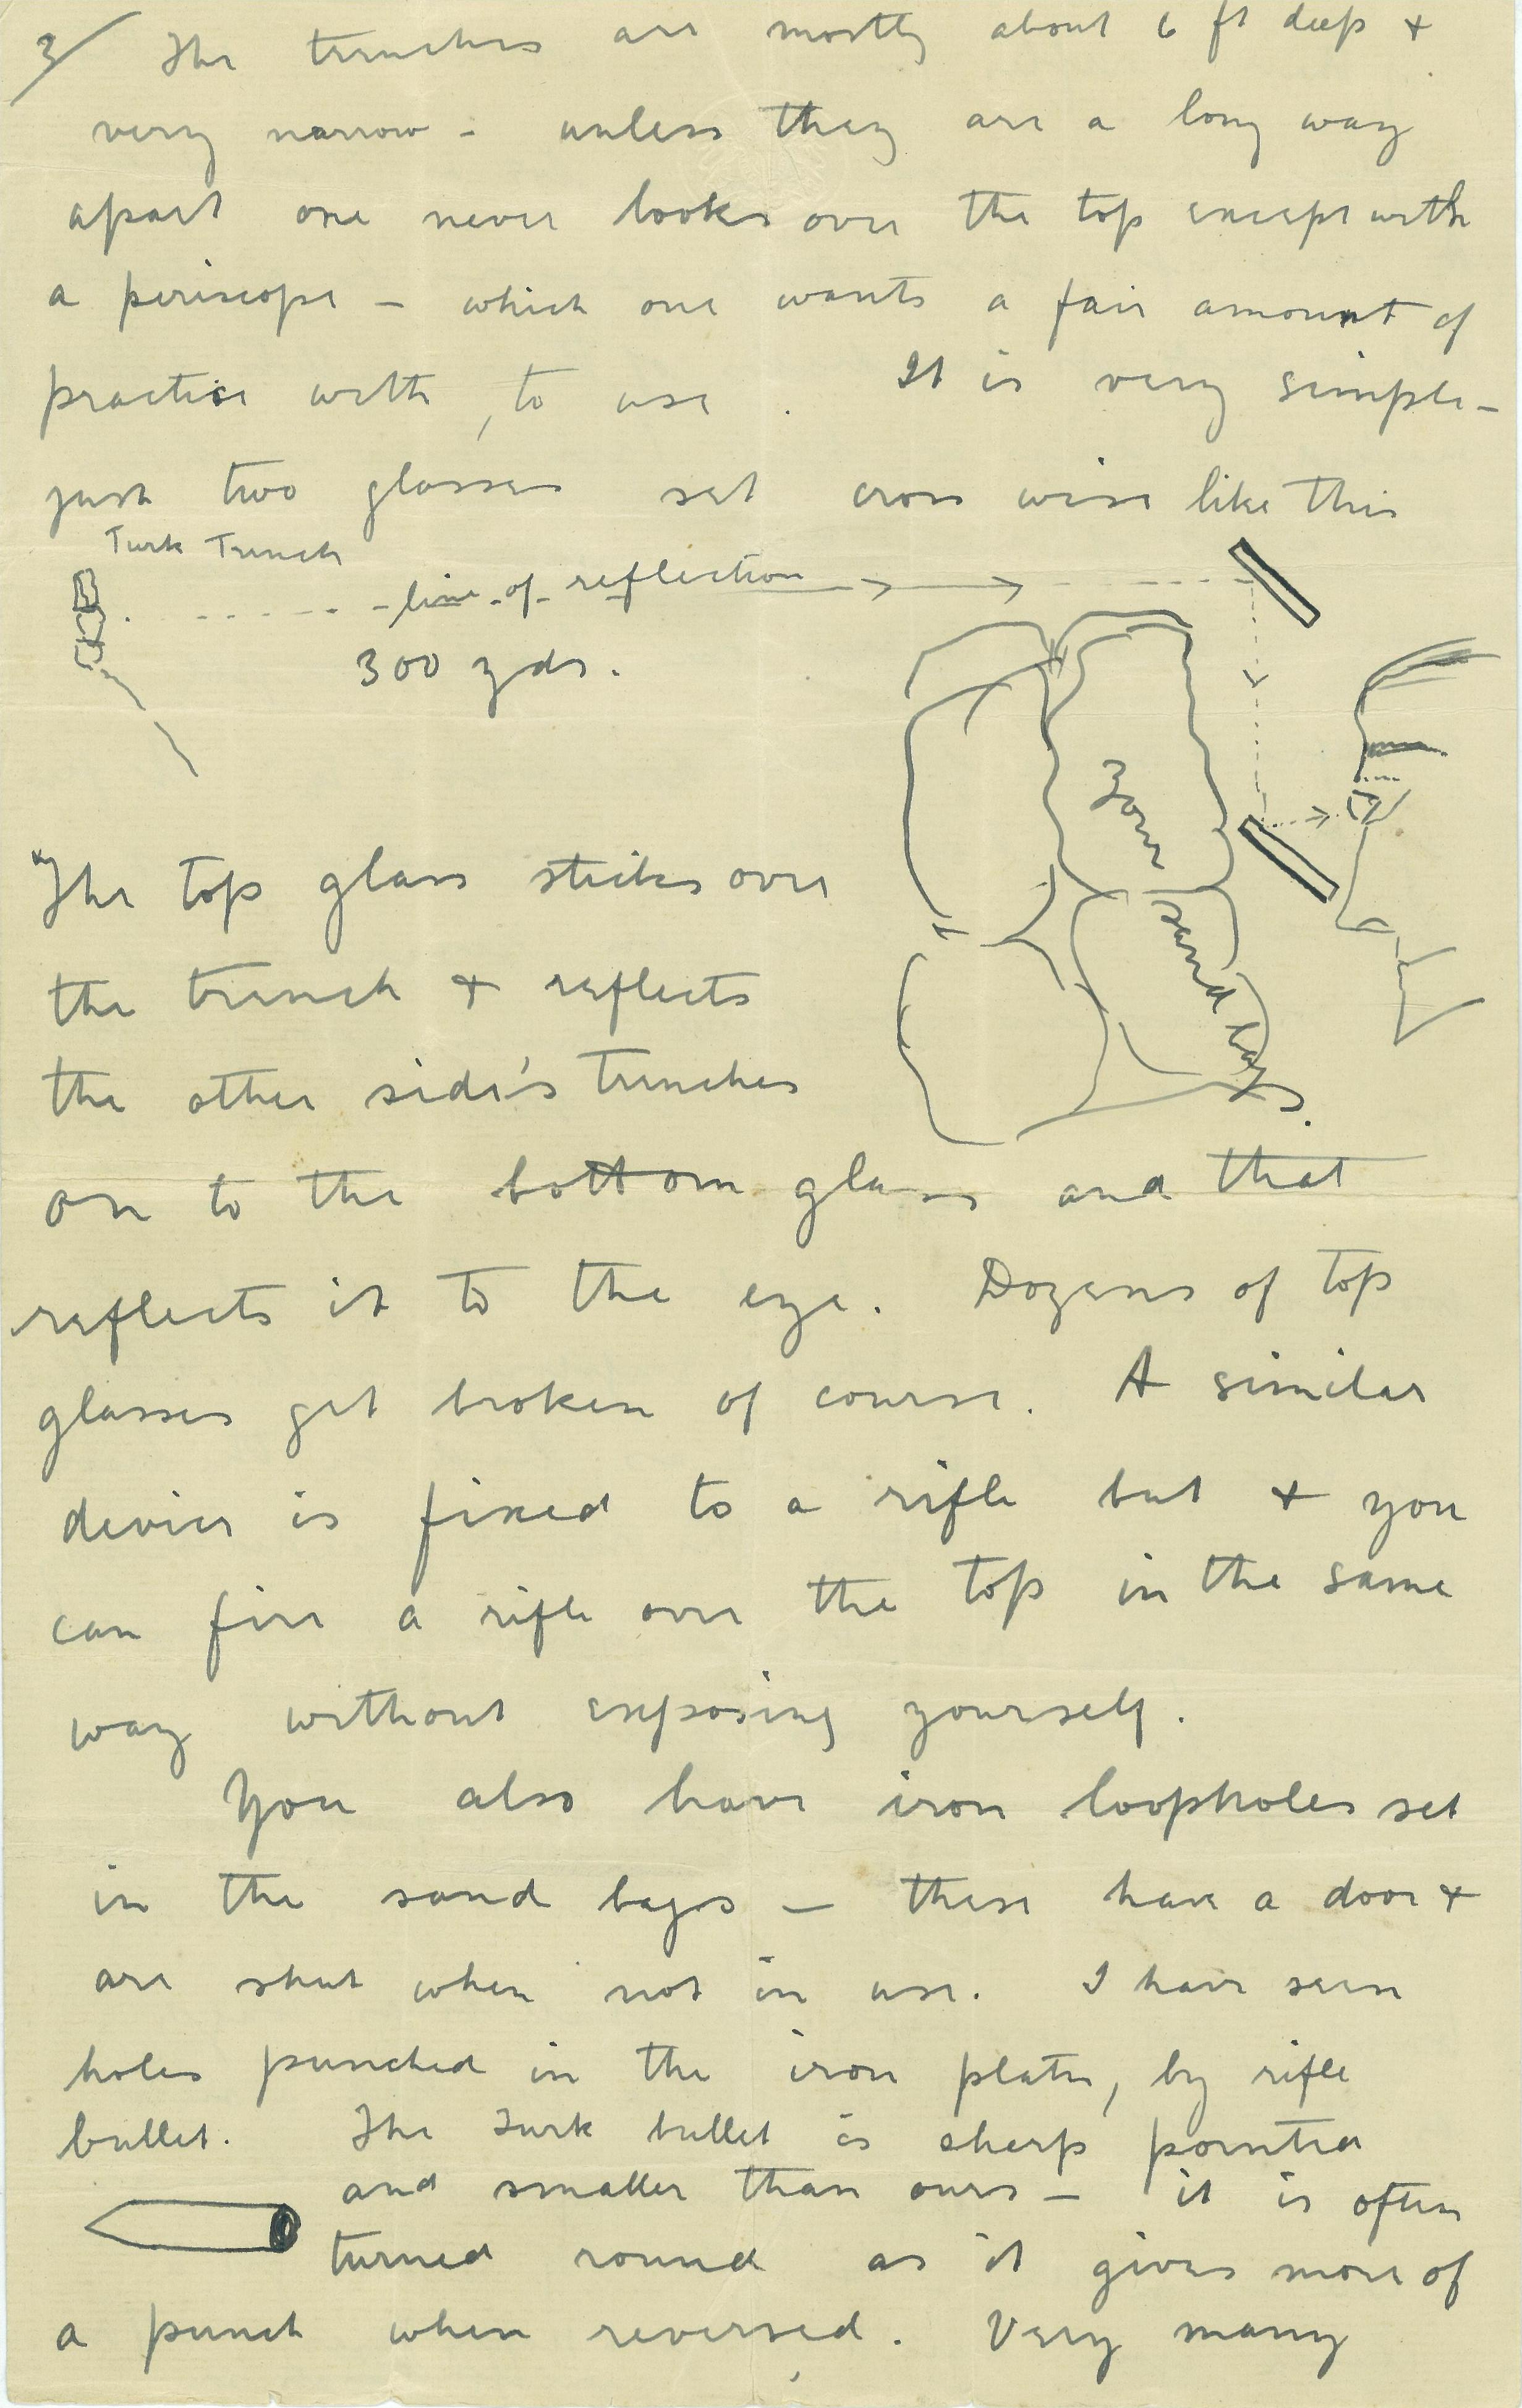 3/ The trenches are mostly about 6 ft deep +
very narrow - unless they are a long way
apart one never looks over the top except with
a periscope - which one wants a fair amount of
practise with, to use. It is very simple -
just two glasses set cross wise like this
Turk Trench
line of reflection
300 yds.
Your
sand bags.
The top glass sticks over
the trench + reflects
the other side's trenches
on to the bottom glass and that
reflects it to the eye. Dozens of top
glasses get broken of course. A similar
device is fixed to a rifle but + you
can fire a rifle over the top in the same
way without exposing yourself.
You also have iron loopholes set
in the sand bags - these have a door +
are shut when not in use. I have seen
holes punched in the iron plates, by rifle
bullet. The Turk bullet is sharp pointed
and smaller than ours - it is often
turned round as it gives more of
a punch when reversed. Very many